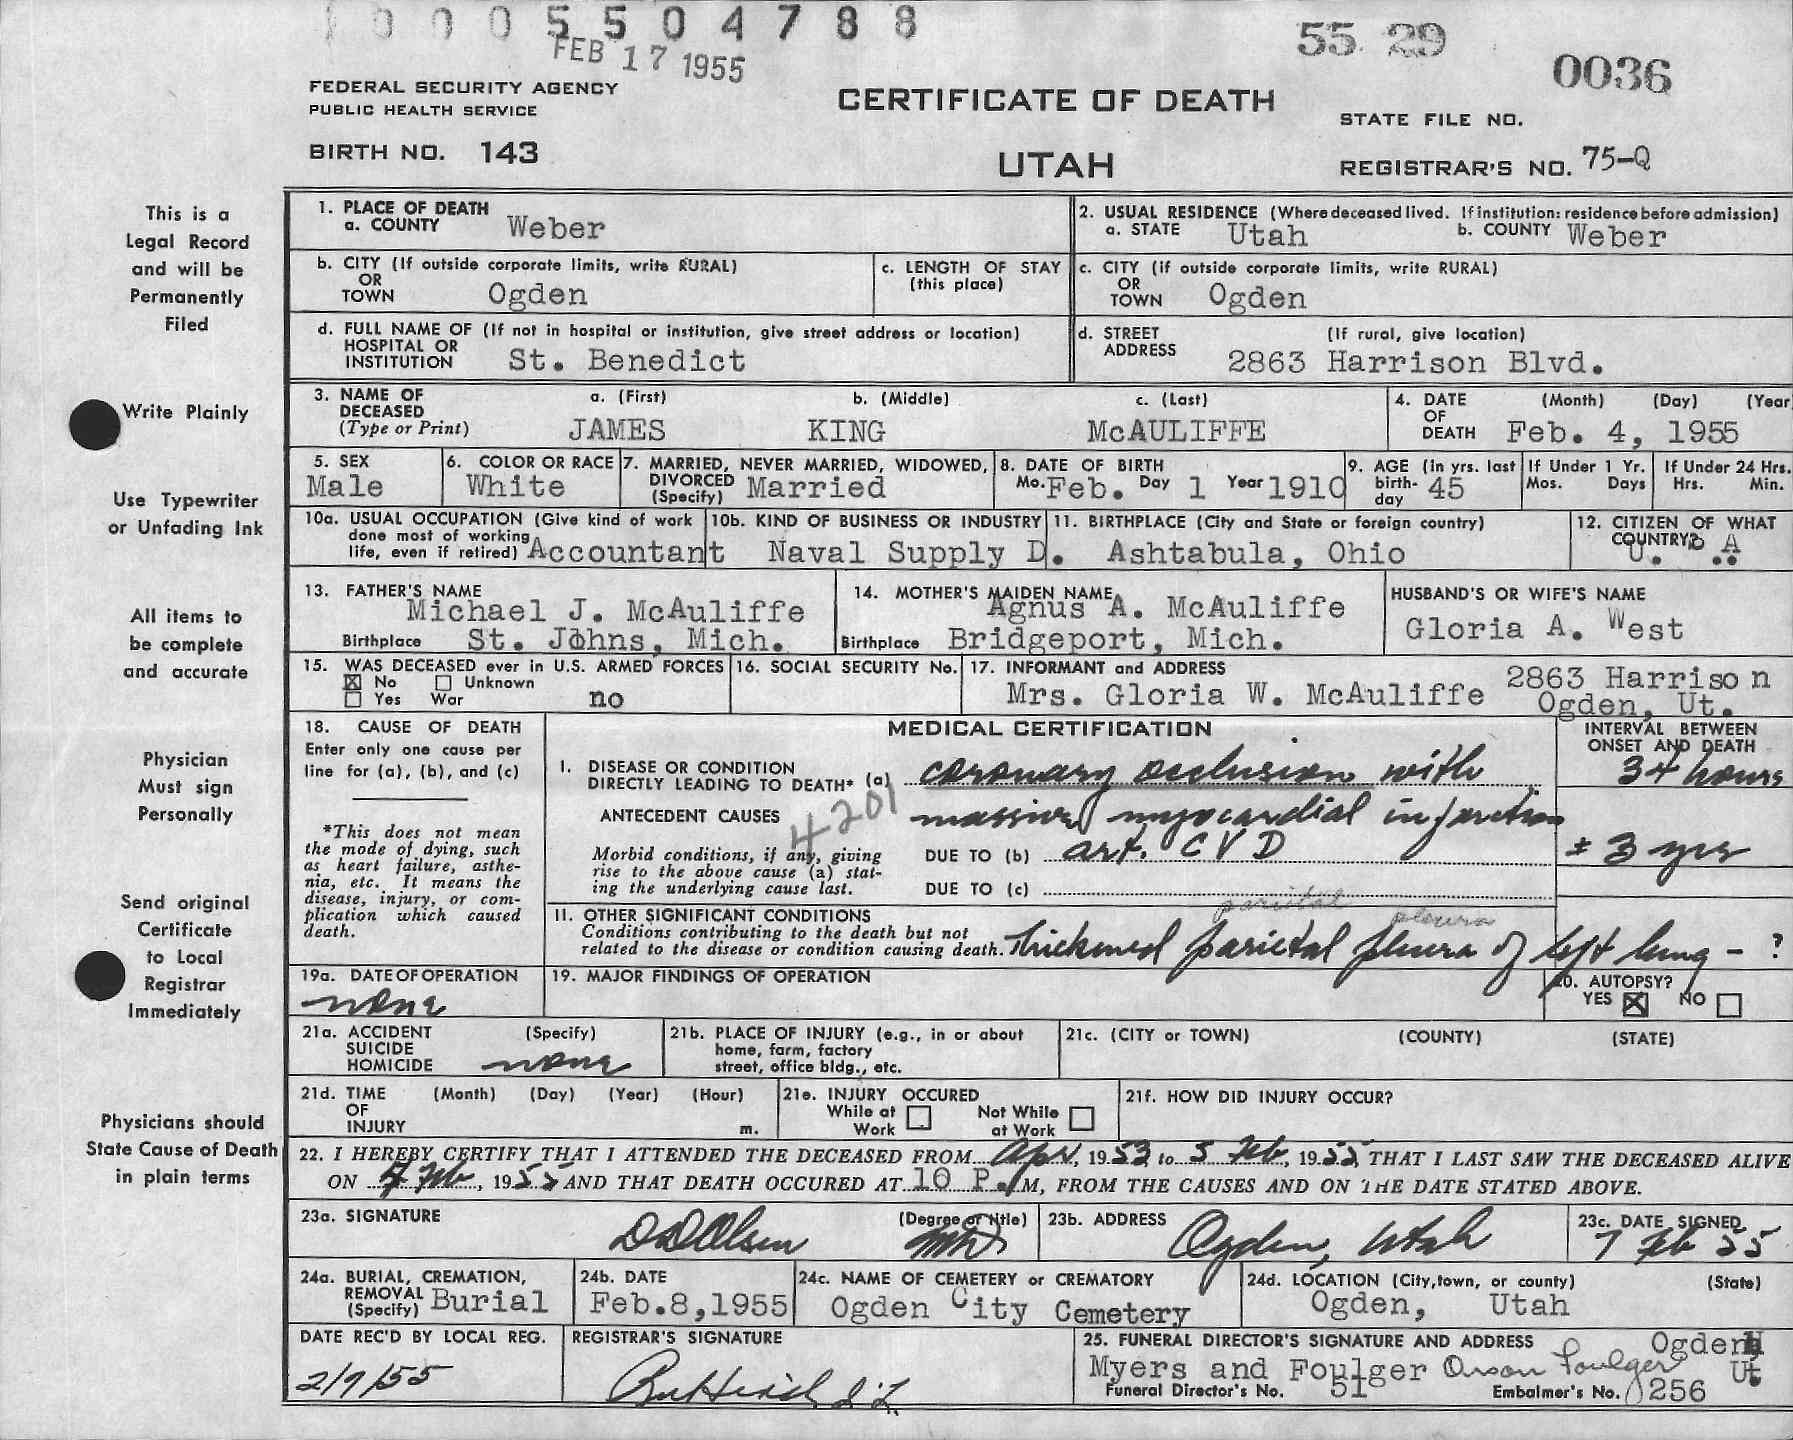 0 0 0 5 5 0 4 7 8 8
FEB 17 1955
55 29
0036
FEDERAL SECURITY AGENCY
PUBLIC HEALTH SERVICE
CERTIFICATE OF DEATH
STATE FILE NO.
BIRTH NO. 143
UTAH
REGISTRAR'S NO. 75-Q
This is a
Legal Record
and will be
Permanently
Filed
Write Plainly
Use Typewriter
or Unfading Ink
All items to
be complete
and accurate
Physician
Must sign
Personally
Send original
Certificate
to Local
Registrar
Immediately
Physicians should
State Cause of Death
in plain terms
1. PLACE OF DEATH
a. COUNTY Weber
2. USUAL RESIDENCE (Where deceased lived. If institution: residence before admission)
a. STATE Utah b. COUNTY Weber
b. CITY (If outside corporate limits, write RURAL)
OR
TOWN Ogden
c. LENGTH OF STAY
(this place)
c. CITY (if outside corporate limits, write RURAL)
OR
TOWN Ogden
d. FULL NAME OF (If not in hospital or institution, give street address or location)
HOSPITAL OR
INSTITUTION St. Benedict
d. STREET (If rural, give location)
ADDRESS 2863 Harrison Blvd.
3. NAME OF a. (First) b. (Middle) c. (Last)
DECEASED
(Type or Print) JAMES KING McAULIFFE
4. DATE (Month) (Day) (Year
OF
DEATH Feb. 4, 1955
5. SEX
Male
6. COLOR OR RACE
White
7. MARRIED, NEVER MARRIED, WIDOWED,
DIVORCED
(Specify) Married
8. DATE OF BIRTH
Mo. Feb. Day 1 Year 1910
9. AGE (in yrs. last
birth-
day 45
If Under 1 Yr.
Mos. Days
If Under 24 Hrs.
Hrs. Min.
10a. USUAL OCCUPATION (Give kind of work
done most of working
life, even if retired) Accountant
10b. KIND OF BUSINESS OR INDUSTRY
Naval Supply D.
11. BIRTHPLACE (City and State or foreign country)
Ashtabula, Ohio
12. CITIZEN OF WHAT
COUNTRY?
U. S. A.
13. FATHER'S NAME
Michael J. McAuliffe
Birthplace St. Johns, Mich.
14. MOTHER'S MAIDEN NAME
Agnus A. McAuliffe
Birthplace Bridgeport, Mich.
HUSBAND'S OR WIFE'S NAME
Gloria A. West
15. WAS DECEASED ever in U.S. ARMED FORCES
☒ No ☐ Unknown
☐ Yes War no
16. SOCIAL SECURITY No.
17. INFORMANT and ADDRESS
Mrs. Gloria W. McAuliffe 2863 Harrison
Ogden, Ut.
18. CAUSE OF DEATH
Enter only one cause per
line for (a), (b), and (c)
*This does not mean
the mode of dying, such
as heart failure, asthe-
nia, etc. It means the
disease, injury, or com-
plication which caused
death.
MEDICAL CERTIFICATION
INTERVAL BETWEEN
ONSET AND DEATH
I. DISEASE OR CONDITION
DIRECTLY LEADING TO DEATH* (a) coronary occlusion with 34 hours
4201
ANTECEDENT CAUSES massive myocardial infarction
Morbid conditions, if any, giving
rise to the above cause (a) stat-
ing the underlying cause last.
DUE TO (b) art. CVD ± 3 yrs
DUE TO (c)
parietal pleura
II. OTHER SIGNIFICANT CONDITIONS
Conditions contributing to the death but not
related to the disease or condition causing death. Thickened parietal pleura of left lung - ?
19a. DATE OF OPERATION
none
19. MAJOR FINDINGS OF OPERATION
20. AUTOPSY?
YES ☒ NO ☐
21a. ACCIDENT (Specify)
SUICIDE
HOMICIDE none
21b. PLACE OF INJURY (e.g., in or about
home, farm, factory
street, office bldg., etc.
21c. (CITY or TOWN) (COUNTY) (STATE)
21d. TIME (Month) (Day) (Year) (Hour)
OF
INJURY m.
21e. INJURY OCCURED
While at Work ☐ Not While at Work ☐
21f. HOW DID INJURY OCCUR?
22. I HEREBY CERTIFY THAT I ATTENDED THE DECEASED FROM Apr, 1953 to 5 Feb, 1955, THAT I LAST SAW THE DECEASED ALIVE
ON 4 Feb, 1955 AND THAT DEATH OCCURED AT 10 P.M, FROM THE CAUSES AND ON THE DATE STATED ABOVE.
23a. SIGNATURE (Degree or title)
D D Olsen MD
23b. ADDRESS
Ogden, Utah
23c. DATE SIGNED
7 Feb 55
24a. BURIAL, CREMATION,
REMOVAL
(Specify) Burial
24b. DATE
Feb.8,1955
24c. NAME OF CEMETERY or CREMATORY
Ogden City Cemetery
24d. LOCATION (City, town, or county) (State)
Ogden, Utah
DATE REC'D BY LOCAL REG.
2/7/55
REGISTRAR'S SIGNATURE
25. FUNERAL DIRECTOR'S SIGNATURE AND ADDRESS Ogden
Myers and Foulger Orson Foulger Ut.
Funeral Director's No. 51 Embalmer's No. 256